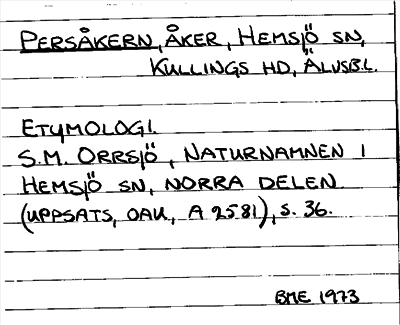 PERSÅKERN, ÅKER, HEMSJÖ SN,
KULLINGS HD, ÄLVSB.L.
ETYMOLOGI.
S.M. ORRSJÖ, NATURNAMNEN I
HEMSJÖ SN, NORRA DELEN
(UPPSATS, OAU, A 2581), S. 36.
BME 1973